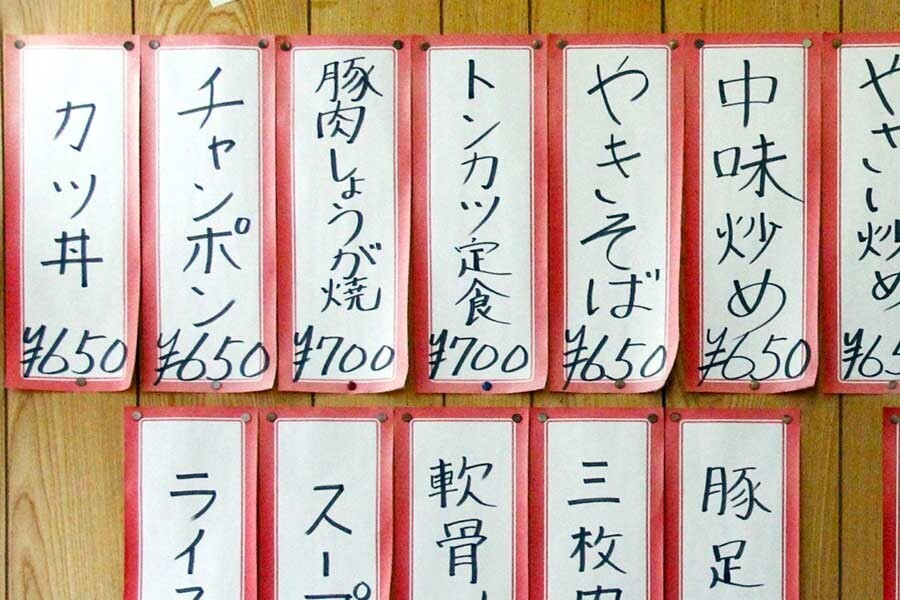 やさい炒め
¥65
中味炒め
¥650
やきそば
¥650
トンカツ定食
¥700
豚肉しょうが焼
¥700
チャンポン
¥650
カツ丼
¥650
豚足
三枚肉
軟骨
スープ
ライス